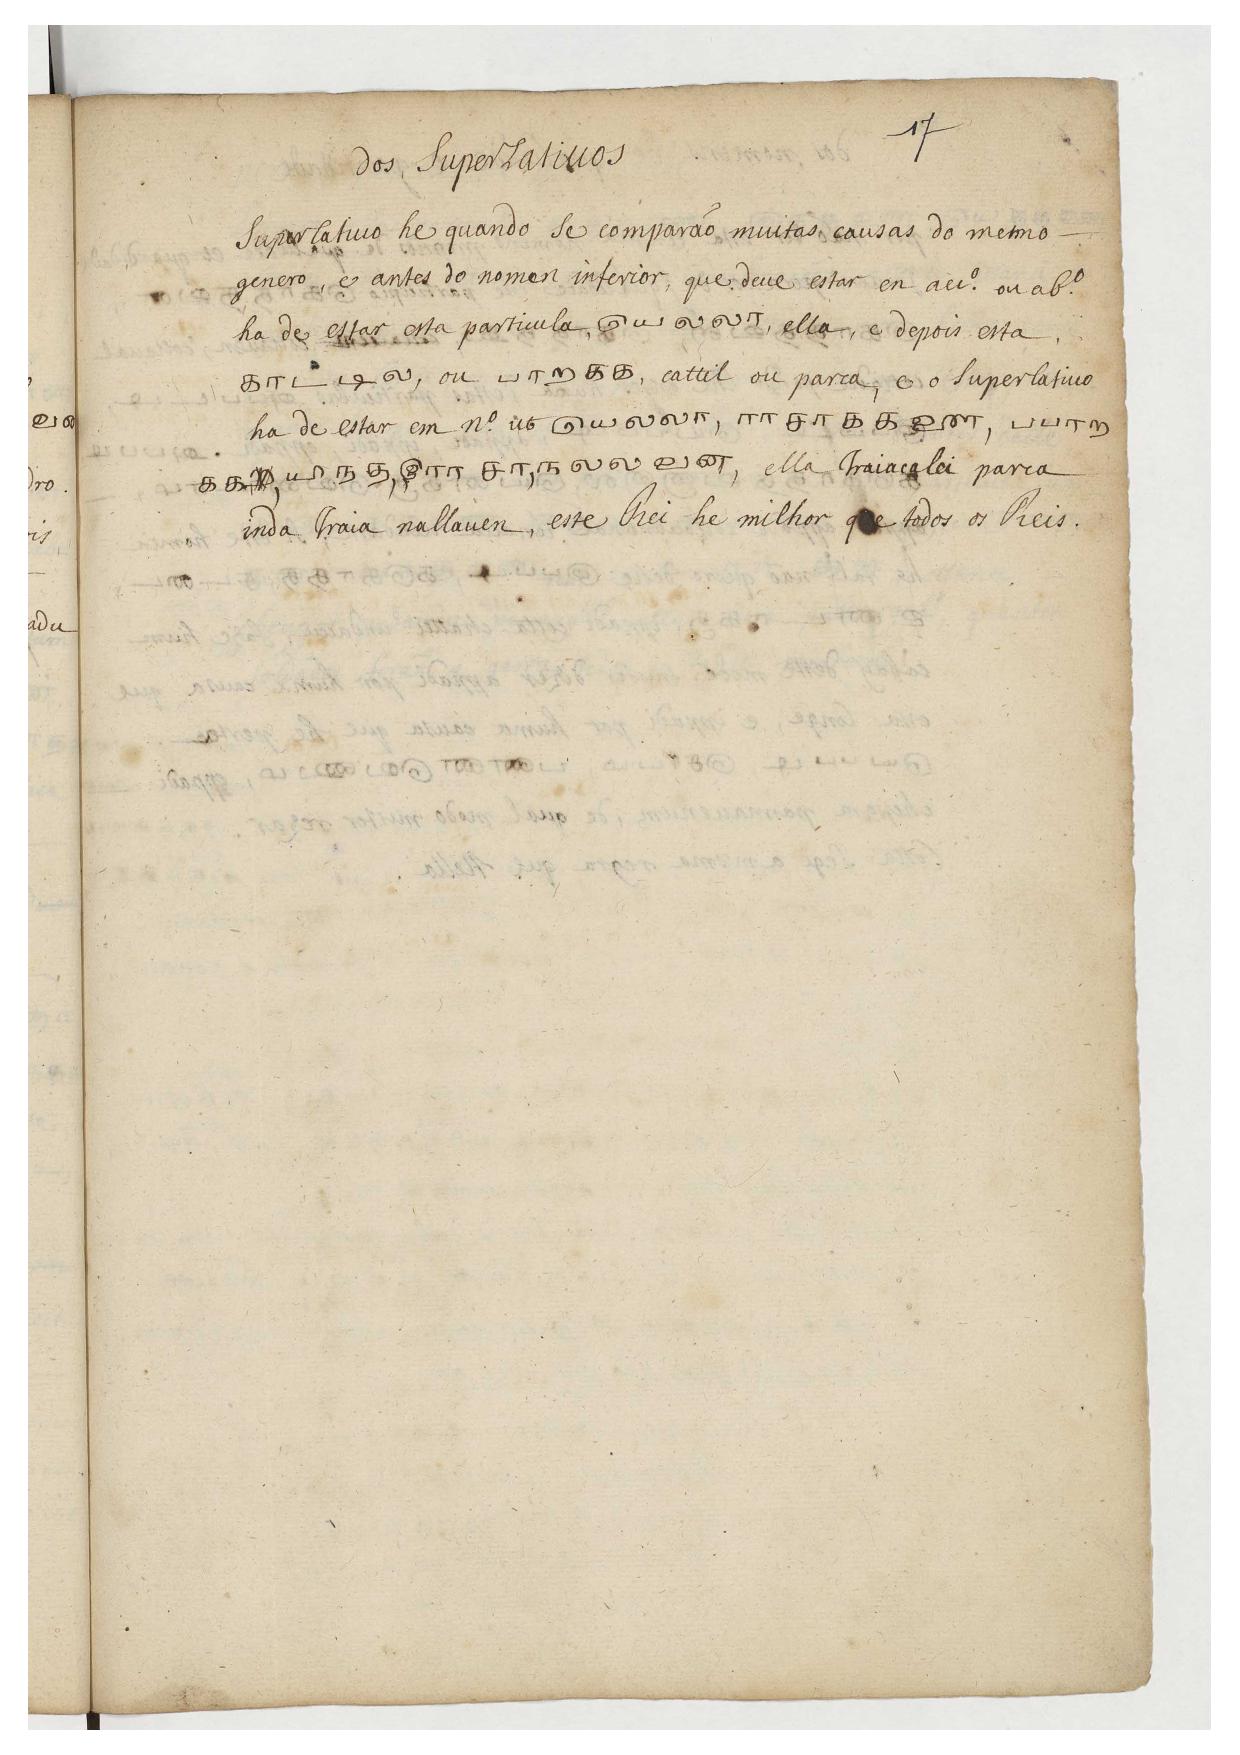 17
dos Superlatiuos
Superlatiuo he quando se comparaõ muitas causas do mesmo
genero, e antes do nomen inferior, que deue estar en acc.º ou ab.º
ha de estar esta particula, யெலலா, ella, e depois esta,
காட்டில, ou பாறகக, cattil ou parca, e o Superlatiuo
ha de estar em n.º ut யெலலா, ராசாககளை, பபாற
கக, யிநத, ராசா, நலலவன, ella Traiacalei parca
inda Traia nallauen, este Rei he milhor que todos os Reis.